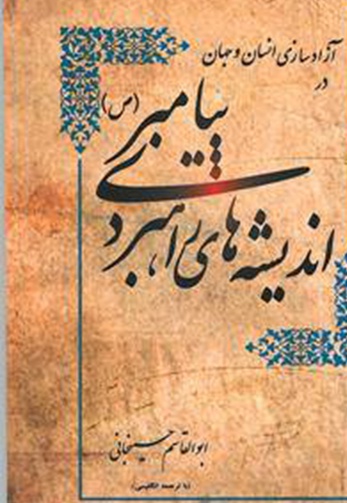 آزادسازی انسان و جهان
در
اندیشه‌های راهبردی
پیامبر (ص)
ابوالقاسم حسینجانی
(با ترجمه انگلیسی)